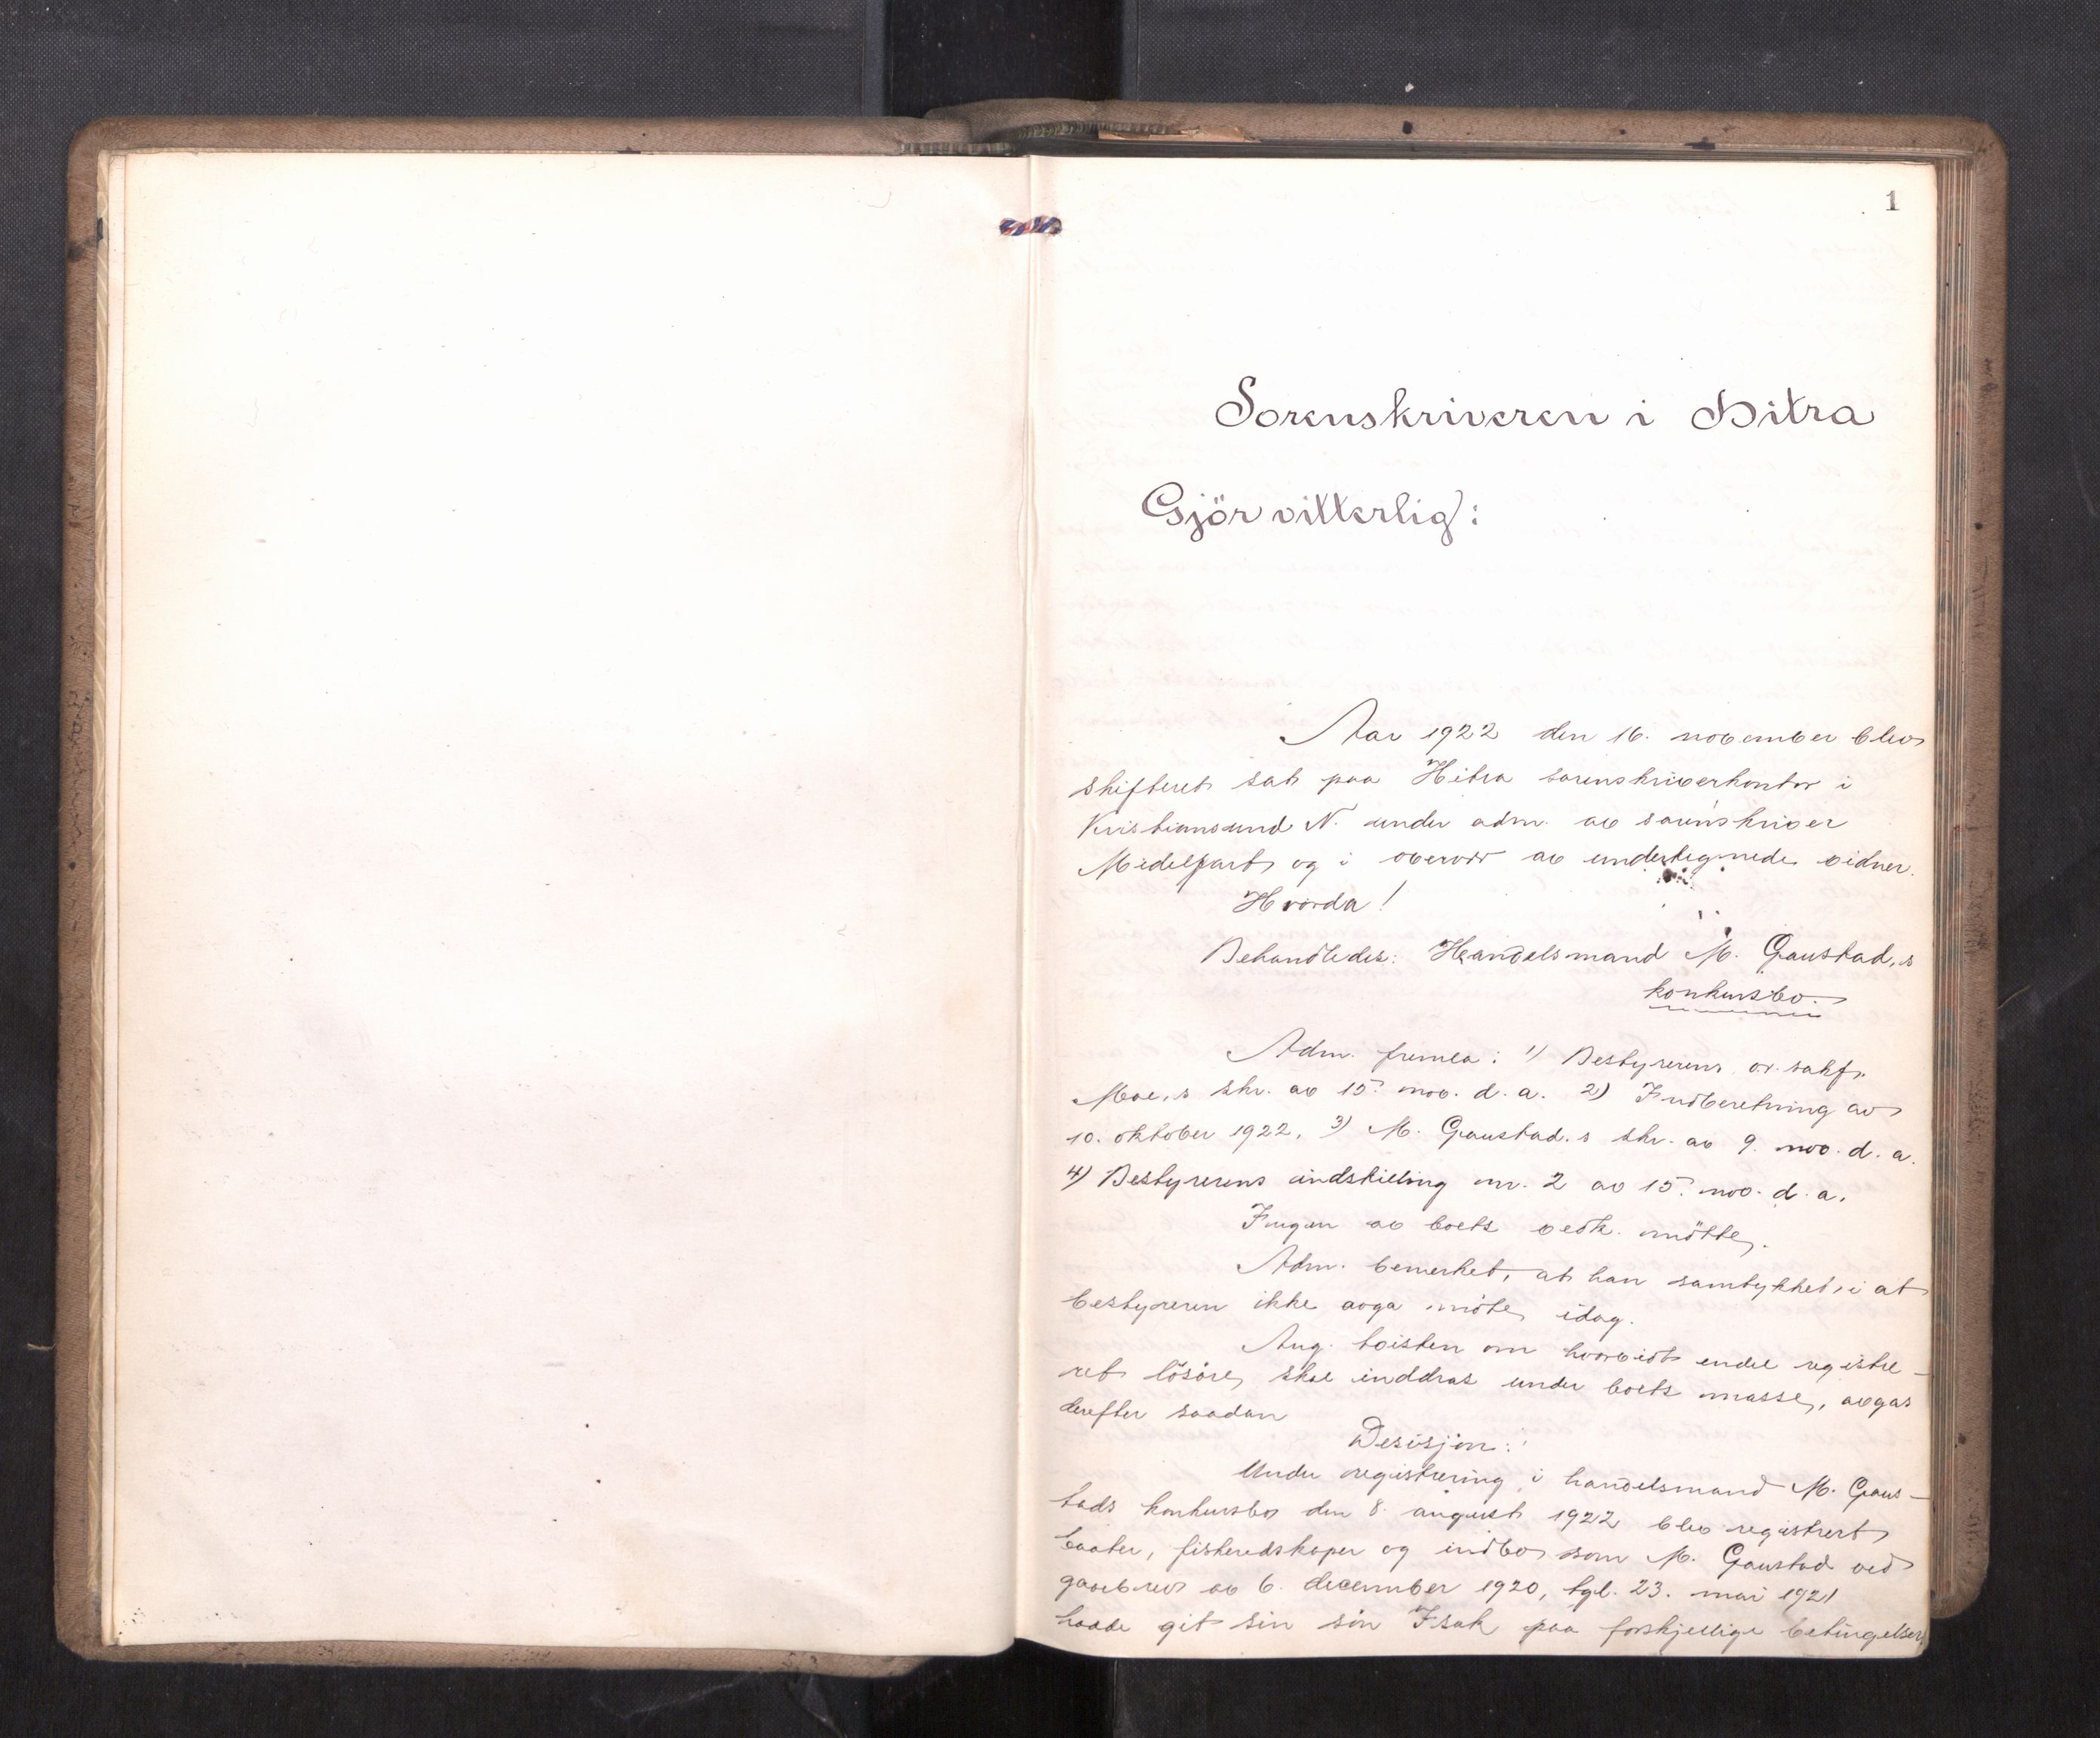 1
Sorenskriveren i Hitra
Gjör vitterlig:
Aar 1922 den 16. november blev
skifteret sat paa Hitra sorenskriverkontor i
Kristiansund N. under adm. av sorenskriver
Midelfart og i overvær av undertegnede vidner.
Hvorda!
Behandledes: Handelsmand M. Gaustad,s
konkursbo.
Adm. fremla: 1) Bestyrerens, or. sakf.
Moe,s skr. av 15. nov. d. a. 2) Indberetning av
10. oktober 1922, 3) M. Gaustad.s skr. av 9. nov. d. a.
4) Bestyrerens indstilling nr. 2 av 15. nov. d. a.
Ingen av boets vedk. mötte.
Adm. bemerket, at han samtykket i at
bestyreren ikke avga möte idag.
Ang. tvisten om hvorvidt endel registre-
ret lösöre skal inddras under boets masse, avgas
derefter saadan
Desisjon:
Under registrering i handelsmand M. Gaus-
tads konkursbo den 8. august 1922 blev registrert
baater, fiskeredskaper og indbo som M. Gaustad ved
gavebrev av 6. december 1920, tgl. 23. mai 1921
hadde git sin sön Isak paa forskjellige betingelser,